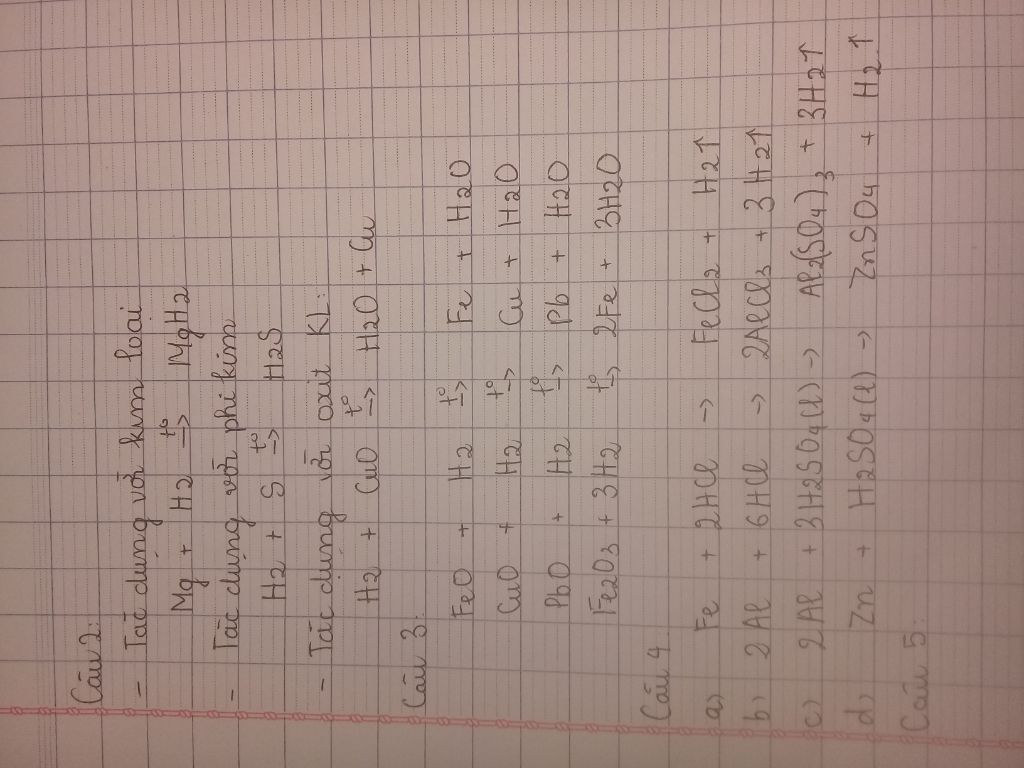 Câu 2:
- Tác dụng với kim loại
Mg + H2 t° -> MgH2
- Tác dụng với phi kim
H2 + S t° -> H2S
- Tác dụng với oxit KL:
H2 + CuO t° -> H2O + Cu
Câu 3:
FeO + H2 t° -> Fe + H2O
CuO + H2 t° -> Cu + H2O
PbO + H2 t° -> Pb + H2O
Fe2O3 + 3H2 t° -> 2Fe + 3H2O
Câu 4
a) Fe + 2HCl -> FeCl2 + H2↑
b) 2Al + 6HCl -> 2AlCl3 + 3H2↑
c) 2Al + 3H2SO4(l) -> Al2(SO4)3 + 3H2↑
d) Zn + H2SO4(l) -> ZnSO4 + H2↑
Câu 5: